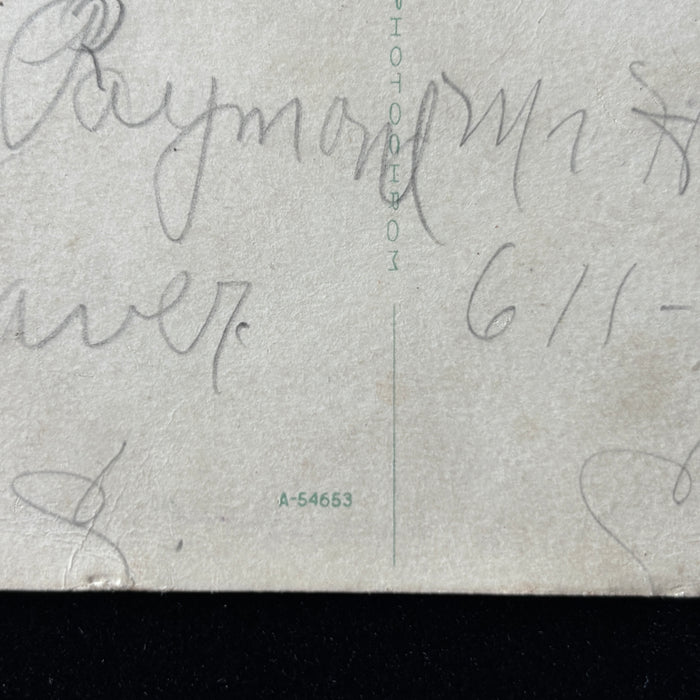 PHOTOCHROM
Raymond
aver.
6-11-
A-54653